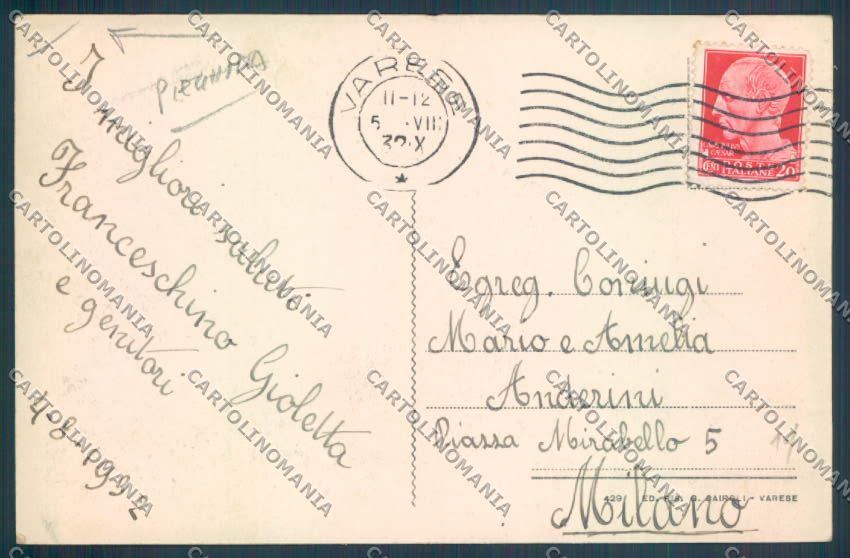 PIEGHINA
I migliori saluti
Franceschino Gioletta
e genitori
4-8-1932
VARESE
11-12
5 . VIII
32 X
GIULIO
CAESAR
POSTE
CENT ITALIANE 20
Egreg. Coniugi
Mario e Amelia
Anderini
Piazza Mirabello 5
Milano
429 ED. FIS. G. BAIROLI - VARESE
CARTOLINOMANIA